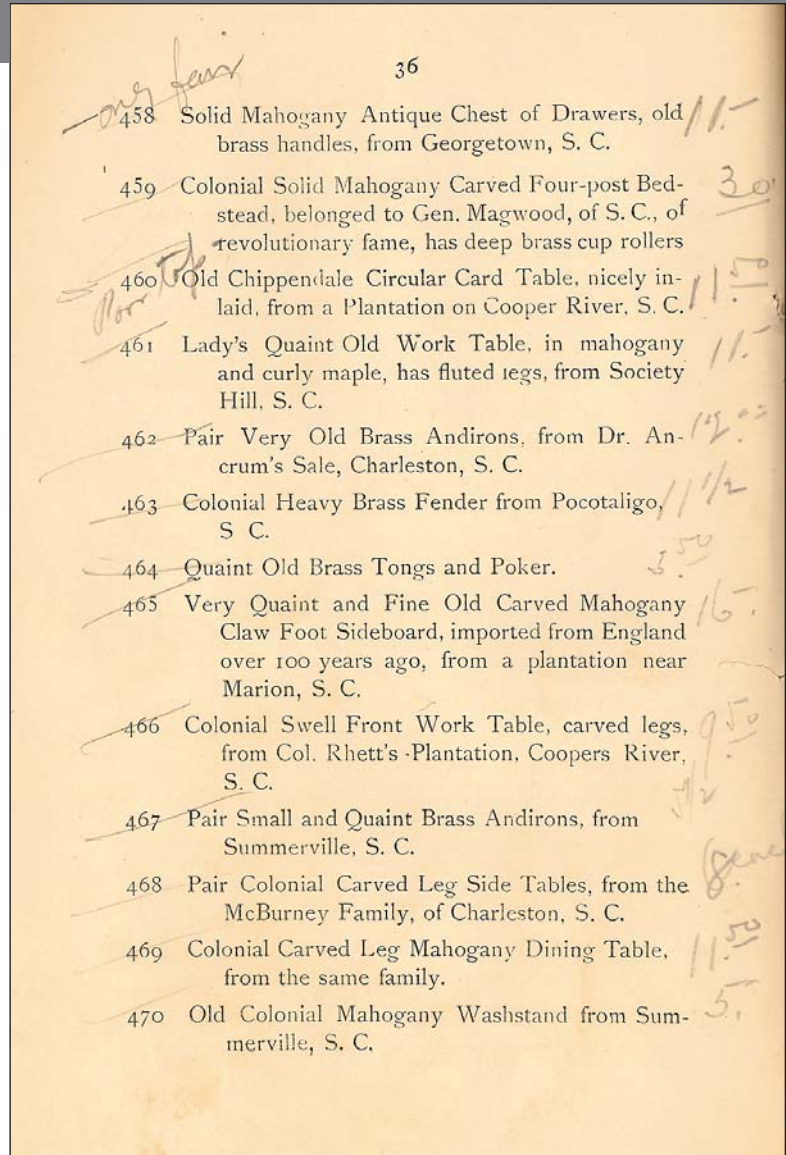 36
only fair
458 Solid Mahogany Antique Chest of Drawers, old 11.-
brass handles, from Georgetown, S. C.
459 Colonial Solid Mahogany Carved Four-post Bed- 30
stead, belonged to Gen. Magwood, of S. C., of
revolutionary fame, has deep brass cup rollers
Poor Top
460 Old Chippendale Circular Card Table, nicely in- 11.50
laid, from a Plantation on Cooper River, S. C.
461 Lady's Quaint Old Work Table, in mahogany 11.-
and curly maple, has fluted legs, from Society
Hill, S. C.
462 Pair Very Old Brass Andirons, from Dr. An-
crum's Sale, Charleston, S. C.
463 Colonial Heavy Brass Fender from Pocotaligo, 11 1/2
S C.
464 Quaint Old Brass Tongs and Poker.
465 Very Quaint and Fine Old Carved Mahogany
Claw Foot Sideboard, imported from England
over 100 years ago, from a plantation near
Marion, S. C.
466 Colonial Swell Front Work Table, carved legs, 9.50
from Col. Rhett's -Plantation, Coopers River,
S. C.
467 Pair Small and Quaint Brass Andirons, from
Summerville, S. C.
468 Pair Colonial Carved Leg Side Tables, from the
McBurney Family, of Charleston, S. C.
469 Colonial Carved Leg Mahogany Dining Table, 11.50
from the same family.
470 Old Colonial Mahogany Washstand from Sum- 5.
merville, S. C.